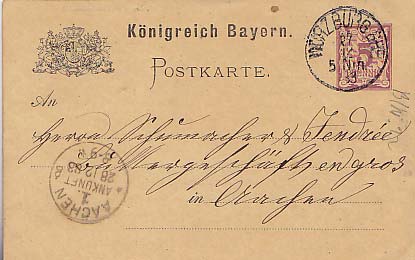 Königreich Bayern.
POSTKARTE.
WÜRZBURG
27
12
5 Nm
An
Herren Schumacher & Jendrée
Vergeschäft en gros
in Aachen
AACHEN
1.
ANKUNFT
28 12 83
8-9 V